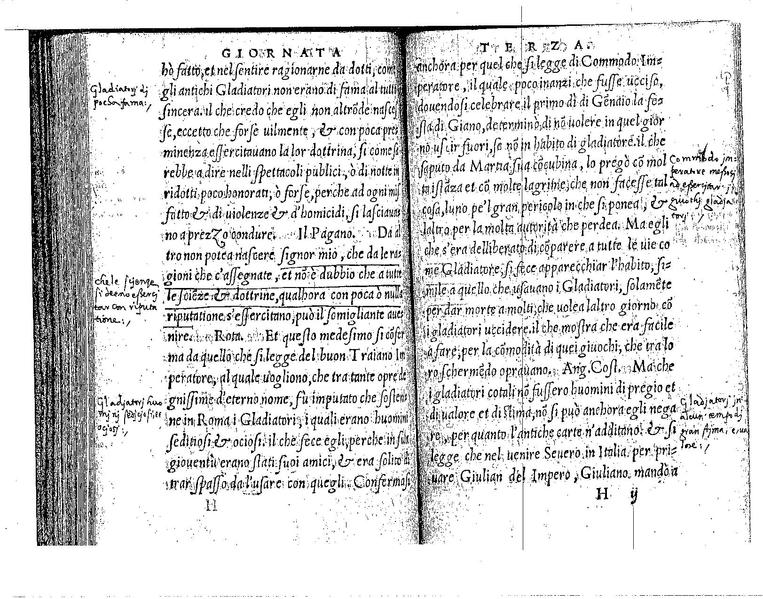 GIORNATA
hò fatto, et nel sentire ragionarne da dotti, com
gli antichi Gladiatori non erano di fama al tutto
sincera. il che credo che egli non altrōde nasces
se, eccetto che forse vilmente, & con poca pre
minenza essercitauano la lor dottrina, si come sa
rebbe a dire nelli spettacoli publici, ò di notte in
ridotti poco honorati, ò forse, perche ad ogni mis
fatto & di uiolenze & d'homicidi, si lasciaua
no a prezzo condure. Il Pagano. Da al
tro non potea nascere signor mio, che da le ra
gioni che c'assegnate, et nō è dubbio che a tutte
le sciēze & dottrine, qualhora con poca ò nulla
riputatione s'essercitano, può il somigliante aue
nire. Rota. Et questo medesimo si cōfer
ma da quello che si legge del buon Traiano Im
peratore, al quale vogliono, che tra tante opre de
gnissime d'eterno nome, fu imputato che sostene
ne in Roma i Gladiatori, i quali erano huomini
seditiosi & ociosi. il che fece egli, perche in sua
giouentù erano stati suoi amici, & era solito di
trar spasso da l'usare con quegli. Confermasi
H
Gladiatorj dj
poca fama:,
riputa
tione:,
Gladiatorj huo
minj seditiosi et
ociosj:,
TERZA.
anchora per quel che si legge di Commodo Im-
peratore, il quale poco inanzi che fusse ucciso,
douendosi celebrare il primo dì di Gēnaio la fe-
sta di Giano, determinò di nō uolere in quel gior
nō uscir fuori, se nō in habito di gladiatore. il che
saputo da Martia sua cōcubina, lo pregò cō mol
ta istāza et cō molte lagrime, che non facesse tal
cosa, l'uno pe'l gran pericolo in che si ponea, &
l'altro per la molta autorità che perdea. Ma egli
che s'era delliberato di cōparere a tutte le uie co
me Gladiatore, si fece apparecchiar l'habito, si-
mile a quello che usauano i Gladiatori, solamēte
per dar morte a molti, che volea l'altro giorno cō
i gladiatori uccidere. il che mostra che era facile
a fare, per la cōmodità di quei giuochi, che tra lo
ro schermēdo oprauano. Ang. Cost. Ma che
i gladiatori cotali nō fussero huomini di pregio et
di ualore et di stima, nō si può anchora egli nega
re, per quanto l'antiche carte n'additano. & si
legge che nel uenire Seuero in Italia, per pri-
uare Giulian del Impero, Giuliano mandò a
H ij
Commodo im-
peratore
Gladiatorj in
alcun tempo dj
gran stima, e ua
lore:,